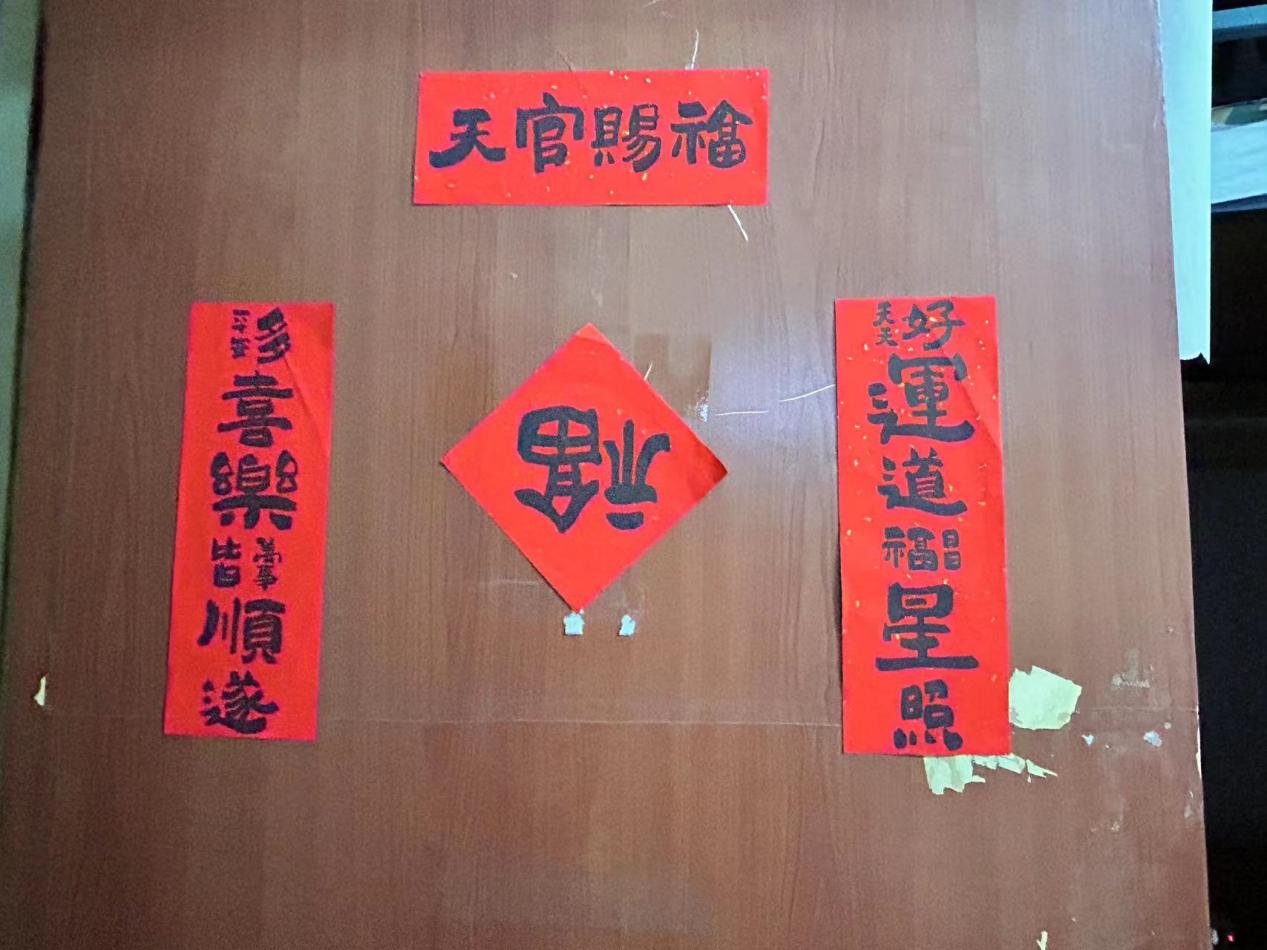 天官賜福
天天好運道日日福星照
多喜樂萬事皆順遂
福